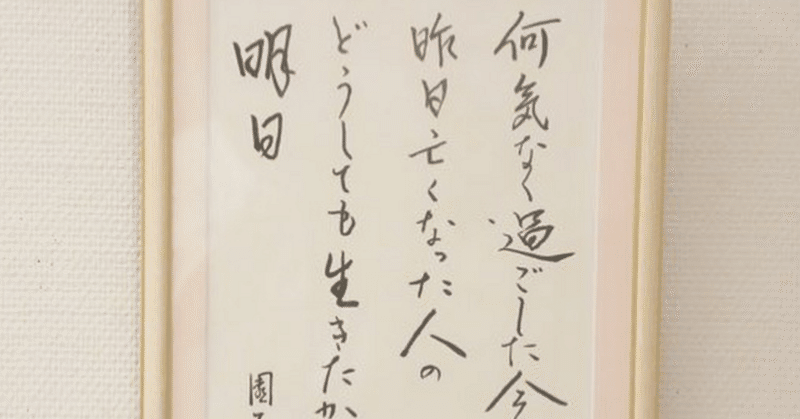 何気なく過ごした今
昨日亡くなった人の
どうしても生きたか
明日
園